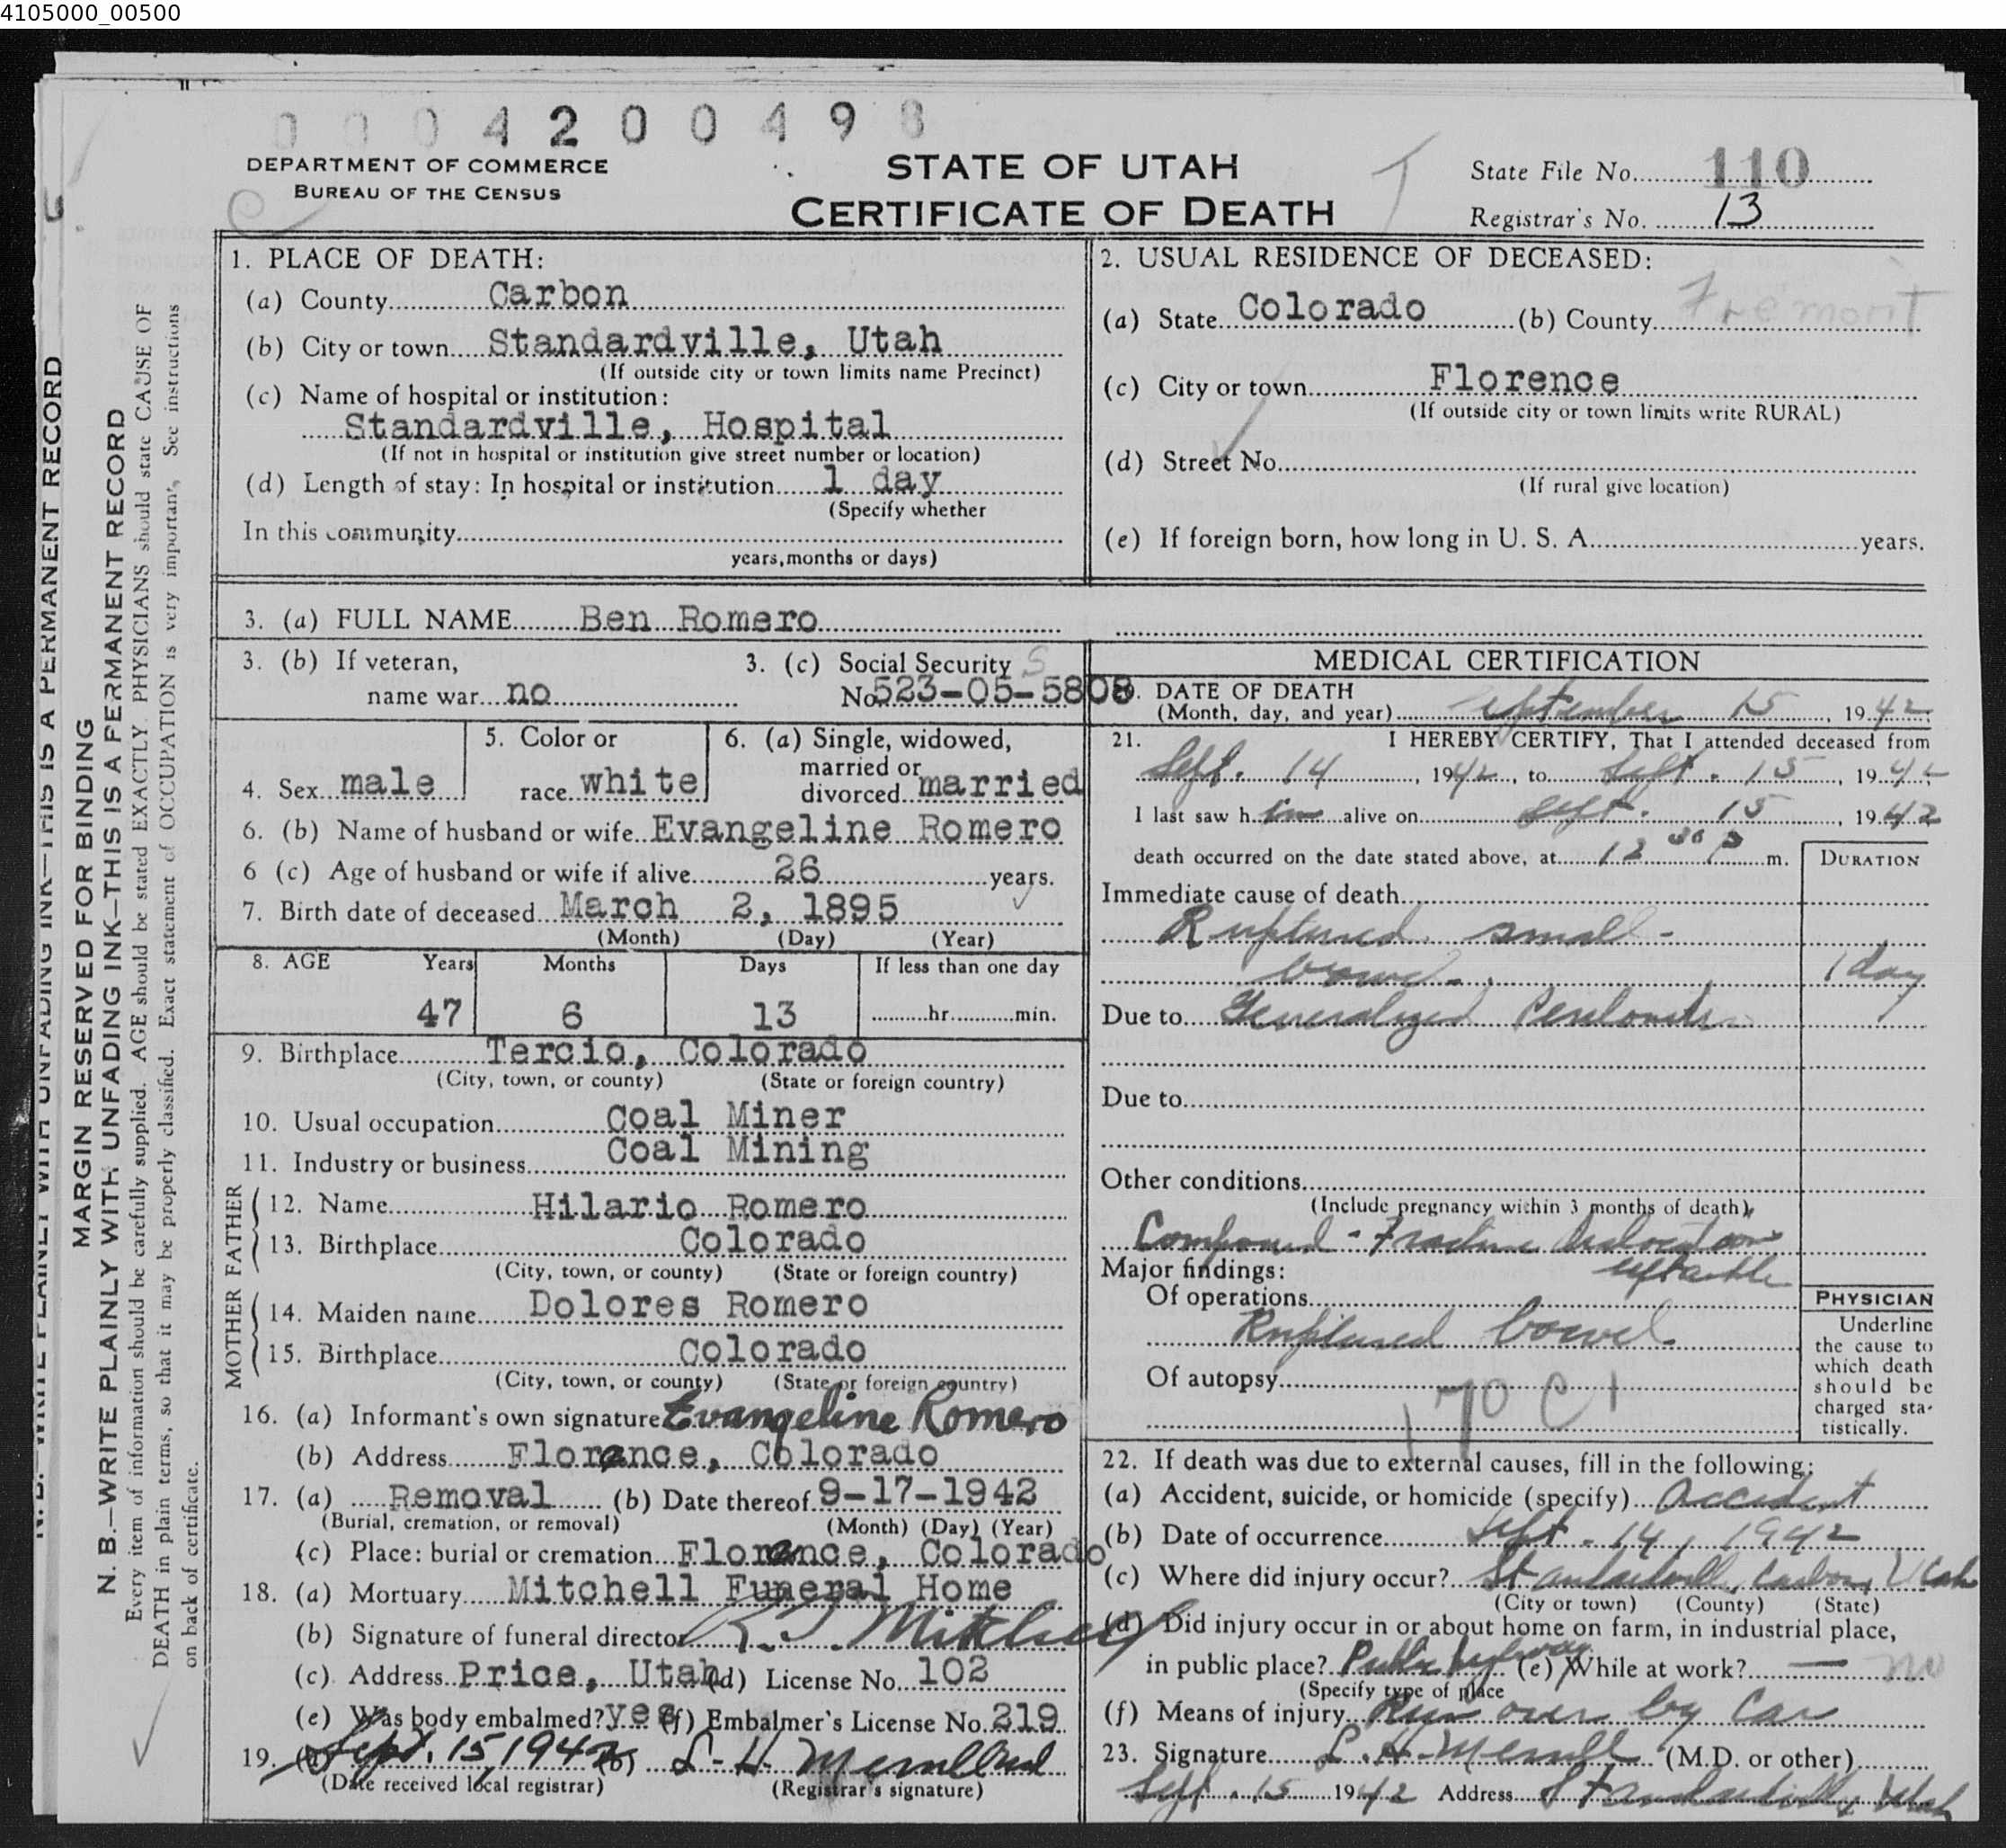 4105000_00500
0004200498
DEPARTMENT OF COMMERCE
BUREAU OF THE CENSUS
STATE OF UTAH
CERTIFICATE OF DEATH
State File No. 110
Registrar's No. 13
1. PLACE OF DEATH:
(a) County Carbon
(b) City or town Standardville, Utah
(If outside city or town limits name Precinct)
(c) Name of hospital or institution:
Standardville, Hospital
(If not in hospital or institution give street number or location)
(d) Length of stay: In hospital or institution 1 day
(Specify whether
In this community
years, months or days)
2. USUAL RESIDENCE OF DECEASED:
(a) State Colorado (b) County Fremont
(c) City or town Florence
(If outside city or town limits write RURAL)
(d) Street No.
(If rural give location)
(e) If foreign born, how long in U. S. A. years.
3. (a) FULL NAME Ben Romero
3. (b) If veteran,
name war no
3. (c) Social Security
No. 523-05-5808
4. Sex male
5. Color or
race white
6. (a) Single, widowed,
married or
divorced married
6. (b) Name of husband or wife Evangeline Romero
6 (c) Age of husband or wife if alive 26 years.
7. Birth date of deceased March 2, 1895
(Month) (Day) (Year)
8. AGE Years Months Days If less than one day
47 6 13 hr. min.
9. Birthplace Tercio, Colorado
(City, town, or county) (State or foreign country)
10. Usual occupation Coal Miner
11. Industry or business Coal Mining
FATHER
12. Name Hilario Romero
13. Birthplace Colorado
(City, town, or county) (State or foreign country)
MOTHER
14. Maiden name Dolores Romero
15. Birthplace Colorado
(City, town, or county) (State or foreign country)
16. (a) Informant's own signature Evangeline Romero
(b) Address Florence, Colorado
17. (a) Removal (b) Date thereof 9-17-1942
(Burial, cremation, or removal) (Month) (Day) (Year)
(c) Place: burial or cremation Florence, Colorado
18. (a) Mortuary Mitchell Funeral Home
(b) Signature of funeral director Mitchell
(c) Address Price, Utah (d) License No. 102
(e) Was body embalmed? yes (f) Embalmer's License No. 219
19. (a) Sept. 15, 1942 (b) L. H. Merrill
(Date received local registrar) (Registrar's signature)
MEDICAL CERTIFICATION
20. DATE OF DEATH
(Month, day, and year) September 15, 1942
21. I HEREBY CERTIFY, That I attended deceased from
Sept. 14, 1942, to Sept. 15, 1942
I last saw him alive on Sept. 15, 1942
death occurred on the date stated above, at 12 30 P m.
DURATION
Immediate cause of death
Ruptured small
bowel. 1 day
Due to Generalized Peritonitis
Due to
Other conditions
(Include pregnancy within 3 months of death)
Compound - Fracture dislocation
Major findings:
Of operations
Ruptured bowel.
Of autopsy
170 C1
PHYSICIAN
Underline
the cause to
which death
should be
charged sta-
tistically.
22. If death was due to external causes, fill in the following:
(a) Accident, suicide, or homicide (specify) Accident
(b) Date of occurrence Sept. 14, 1942
(c) Where did injury occur? Standardville, Carbon, Utah
(City or town) (County) (State)
(d) Did injury occur in or about home on farm, in industrial place,
in public place? Public highway (e) While at work? — no
(Specify type of place
(f) Means of injury Run over by Car
23. Signature L. H. Merrill (M.D. or other)
Sept. 15 1942 Address Standardville, Utah
N. B.—WRITE PLAINLY WITH UNFADING INK—THIS IS A PERMANENT RECORD
MARGIN RESERVED FOR BINDING
N. B.—WRITE PLAINLY WITH UNFADING INK—THIS IS A PERMANENT RECORD
Every item of information should be carefully supplied. AGE should be stated EXACTLY. PHYSICIANS should state CAUSE OF
DEATH in plain terms, so that it may be properly classified. Exact statement of OCCUPATION is very important. See instructions
on back of certificate.